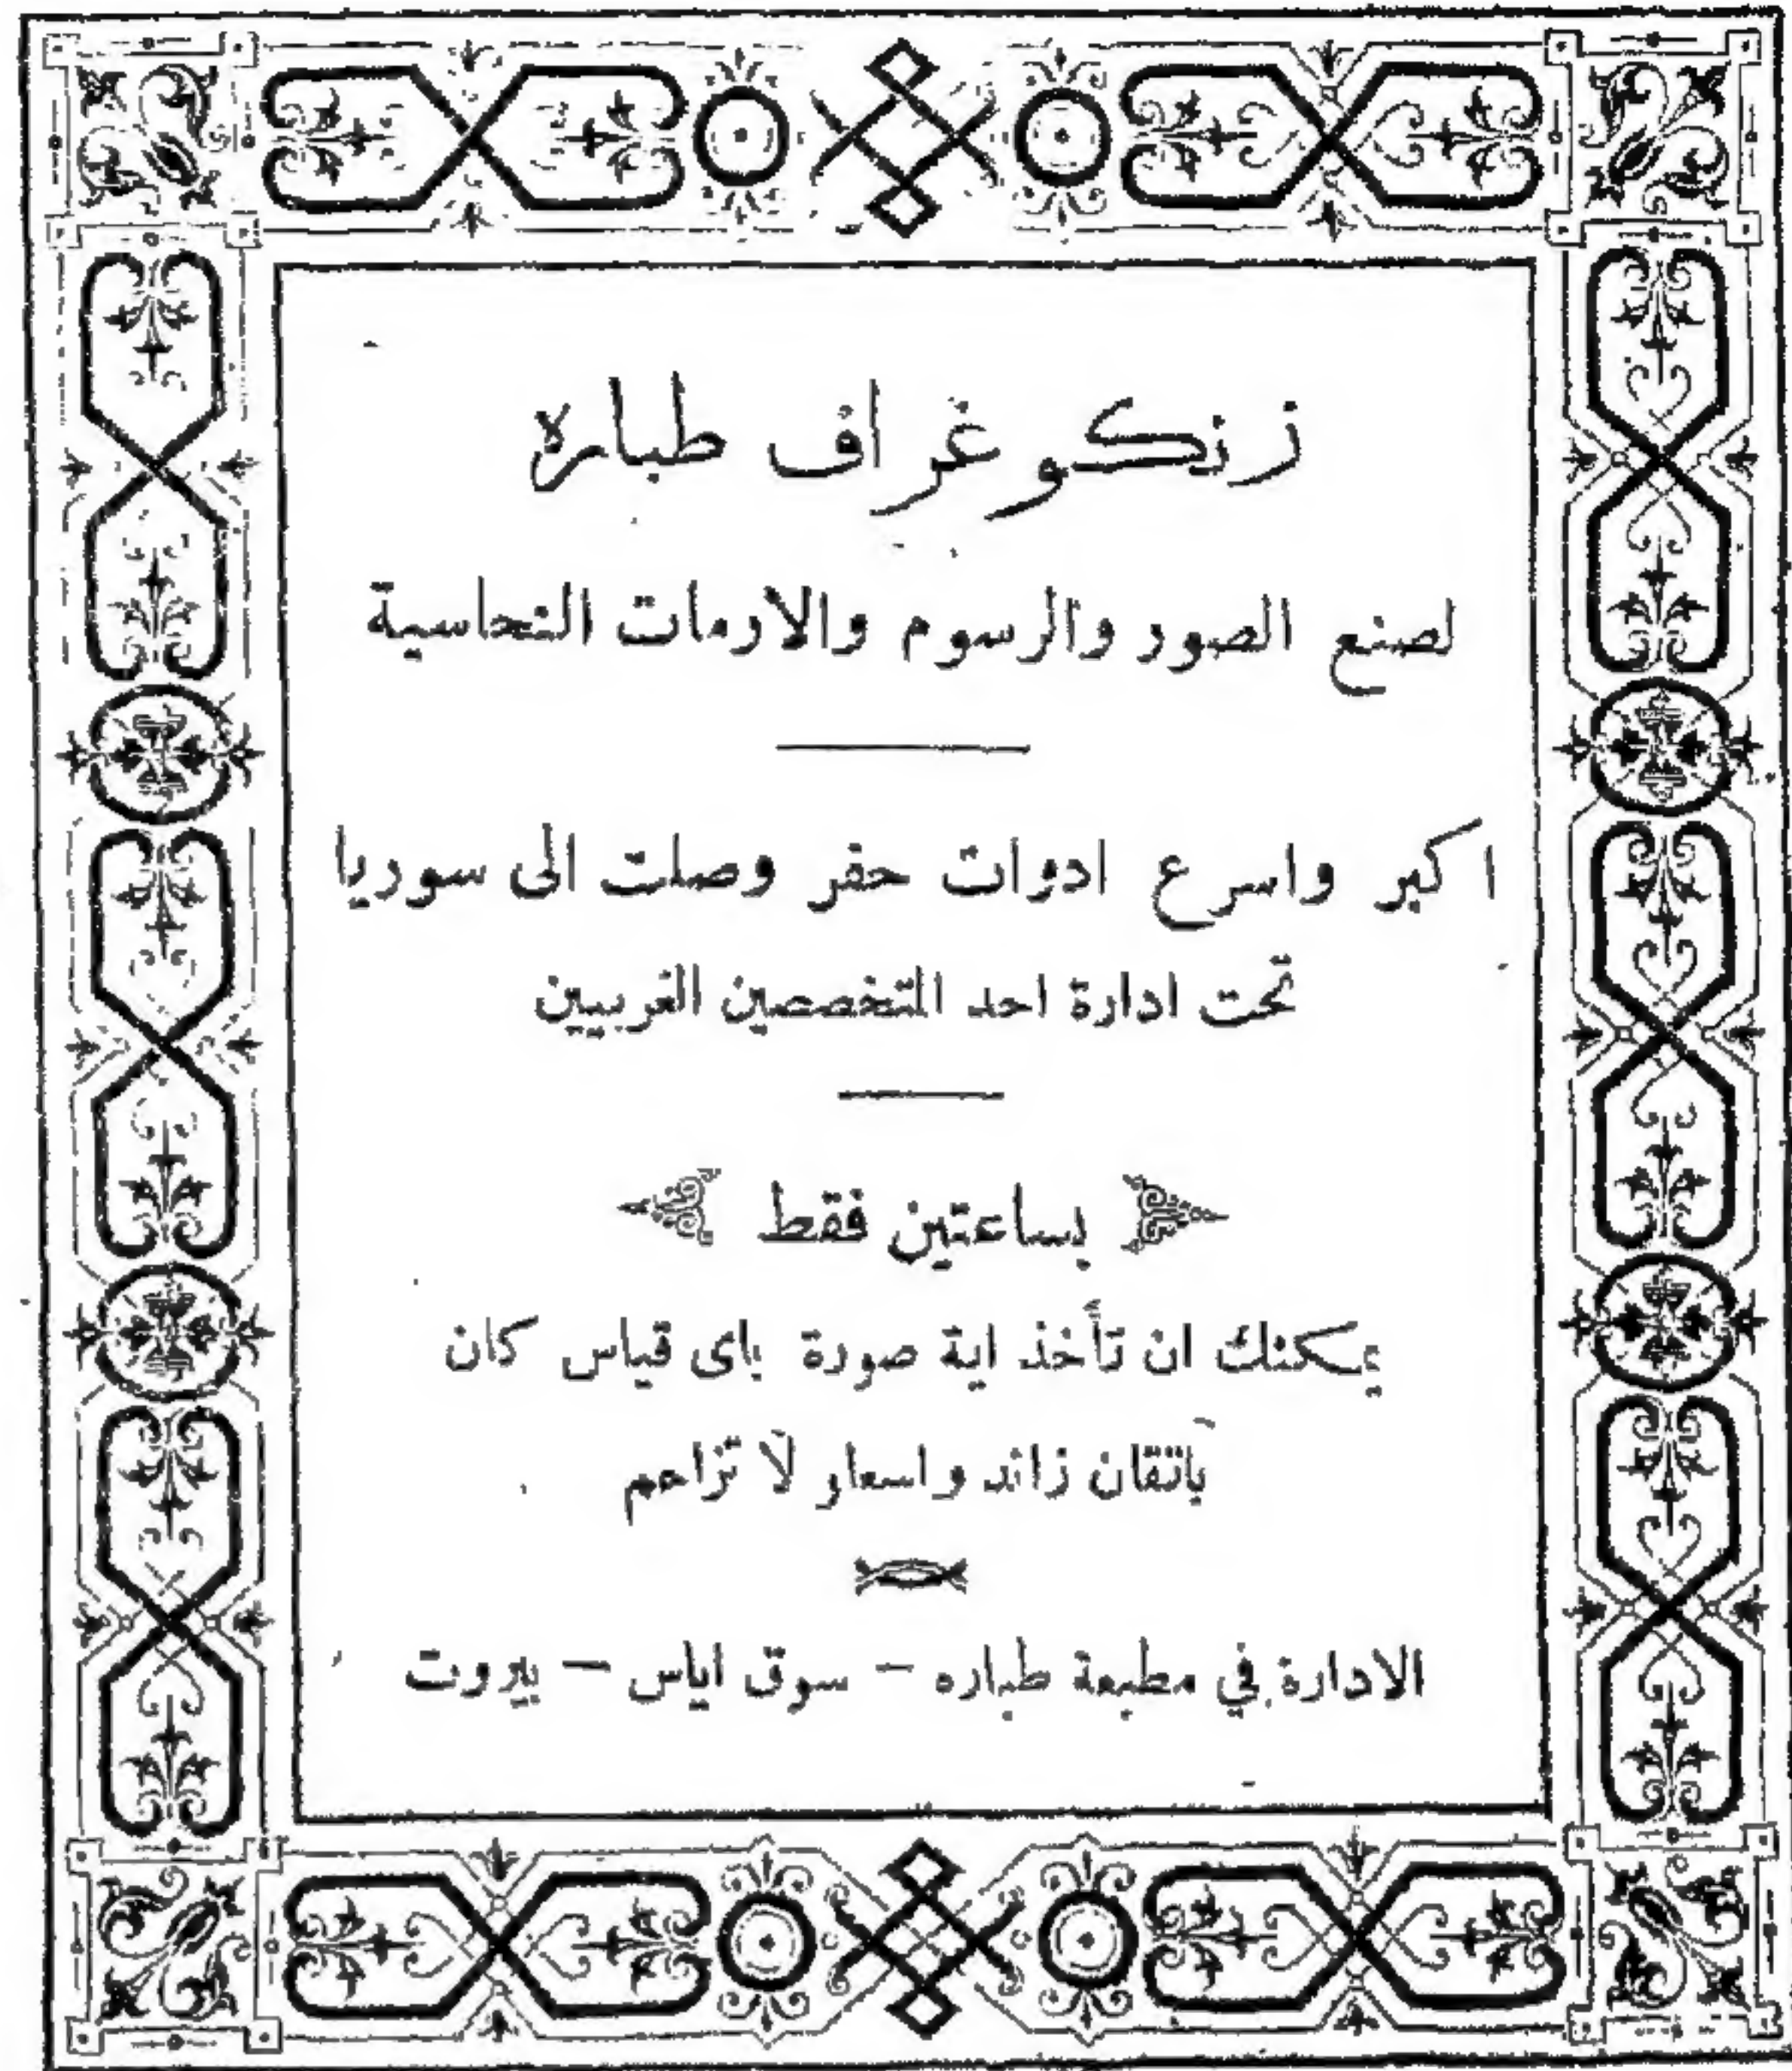 زنكوغراف طباره
لصنع الصور والرسوم والارمات النحاسية
اكبر واسرع ادوات حفر وصلت الى سوريا
تحت ادارة احد المتخصصين الغربيين
بساعتين فقط
يمكنك ان تأخذ اية صورة باى قياس كان
باتقان زائد واسعار لا تزاحم
الادارة في مطبعة طباره — سوق اياس — بيروت